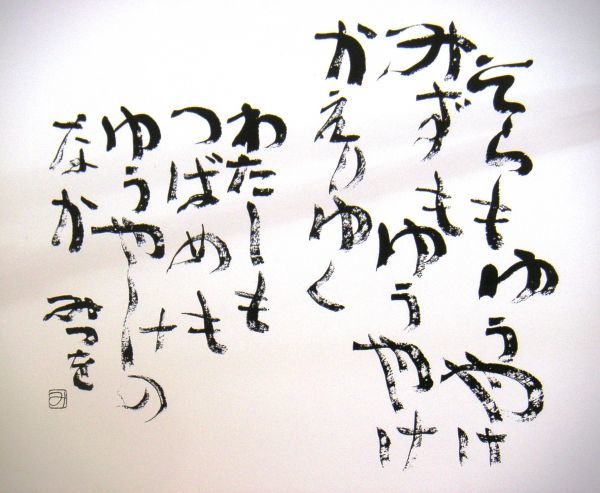 そらもゆうやけ
みずもゆうやけ
かえりゆく
わたしも
つばめも
ゆうやけの
なか
みつを
み